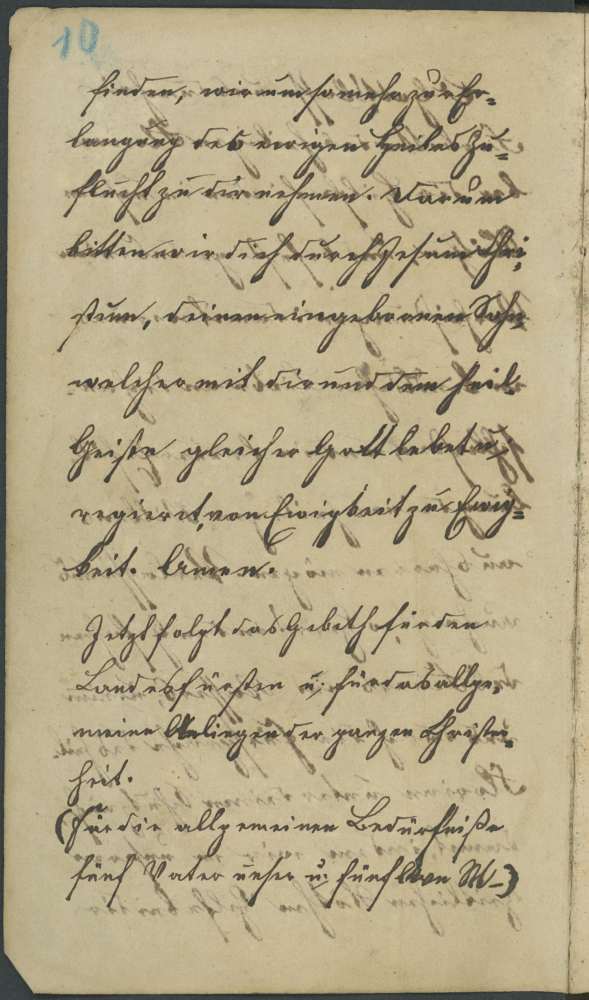 10
finden, wir um so mehr zur Er-
langung des ewigen Heiles Zu-
flucht zu dir nehmen. Darum
bitten wir dich durch Jesum Chri-
stum, deinen eingebornen Sohn
welcher mit dir und dem heil.
Geiste gleicher Gott lebet u.
regieret, von Ewigkeit zu Ewig-
keit. Amen.
Jetzt folgt das Gebeth für den
Landesfürsten u. für das allge-
meine Anliegen der ganzen Christen-
heit.
(Für die allgemeinen Bedürfniße
fünf Vater unser u. fünf Ave M-)